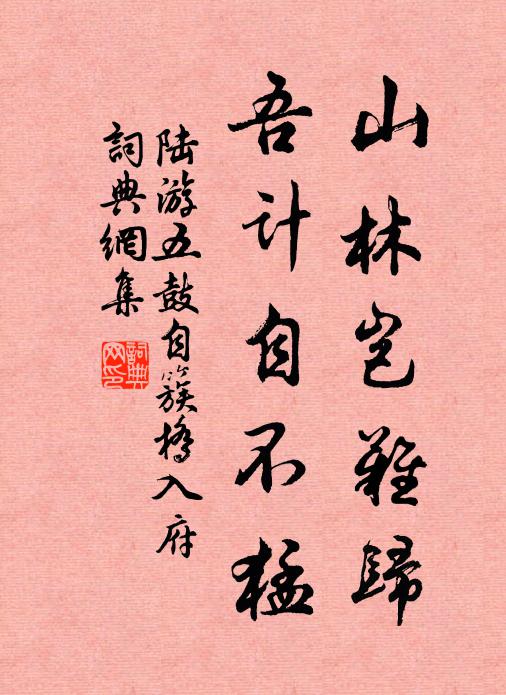 山林岂難歸
吾计自不猛
陆游五鼓自簇橋入府
詞典網集
詞典网印